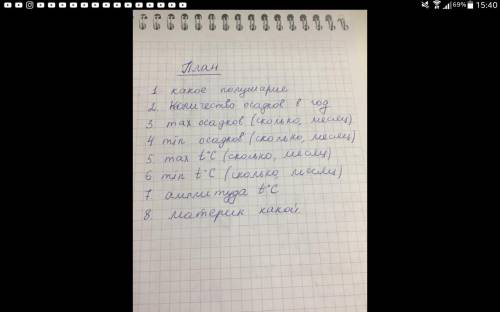 69% 15:40
План
1. какое полушарие
2. Количество осадков в год
3. max осадков (сколько, месяц)
4 min осадков (сколько, месяц)
5. max t°C (сколько, месяц)
6 min t°C (сколько месяц)
7. амплитуда t°C
8. материк какой.